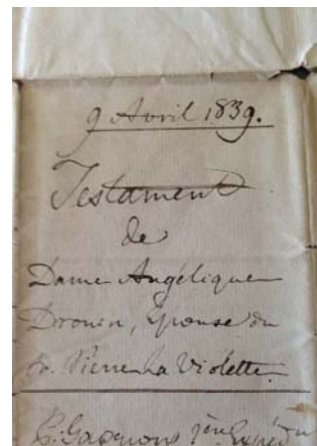 9 Avril 1839.
Testament
de
Dame Angélique
Drouin, Epouse du
Sr. Pierre La Violette.
P. Gagnon